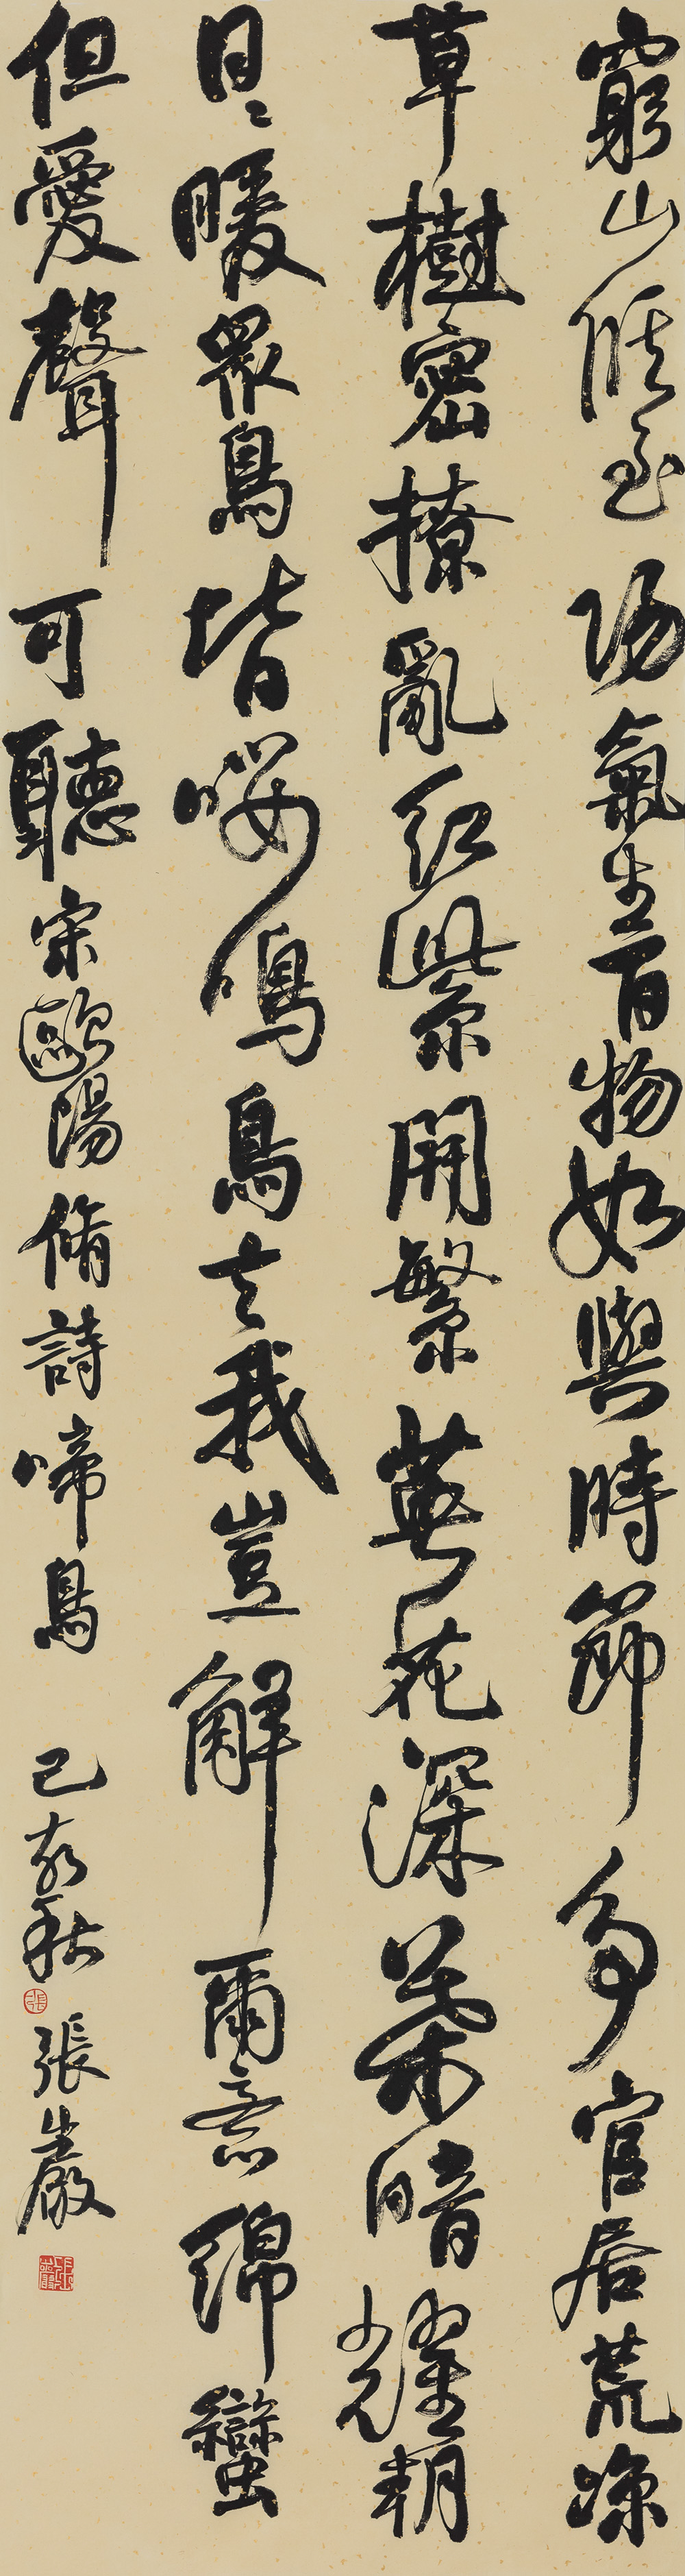 窮山候至陽氣生百物如與時節爭官居荒涼
草樹密撩亂紅紫開繁英花深葉暗耀朝
日〻暖眾鳥皆嚶鳴鳥言我豈解爾意綿蠻
但愛聲可聽宋歐陽脩詩啼鳥 己亥秋 張巖
張
張巖